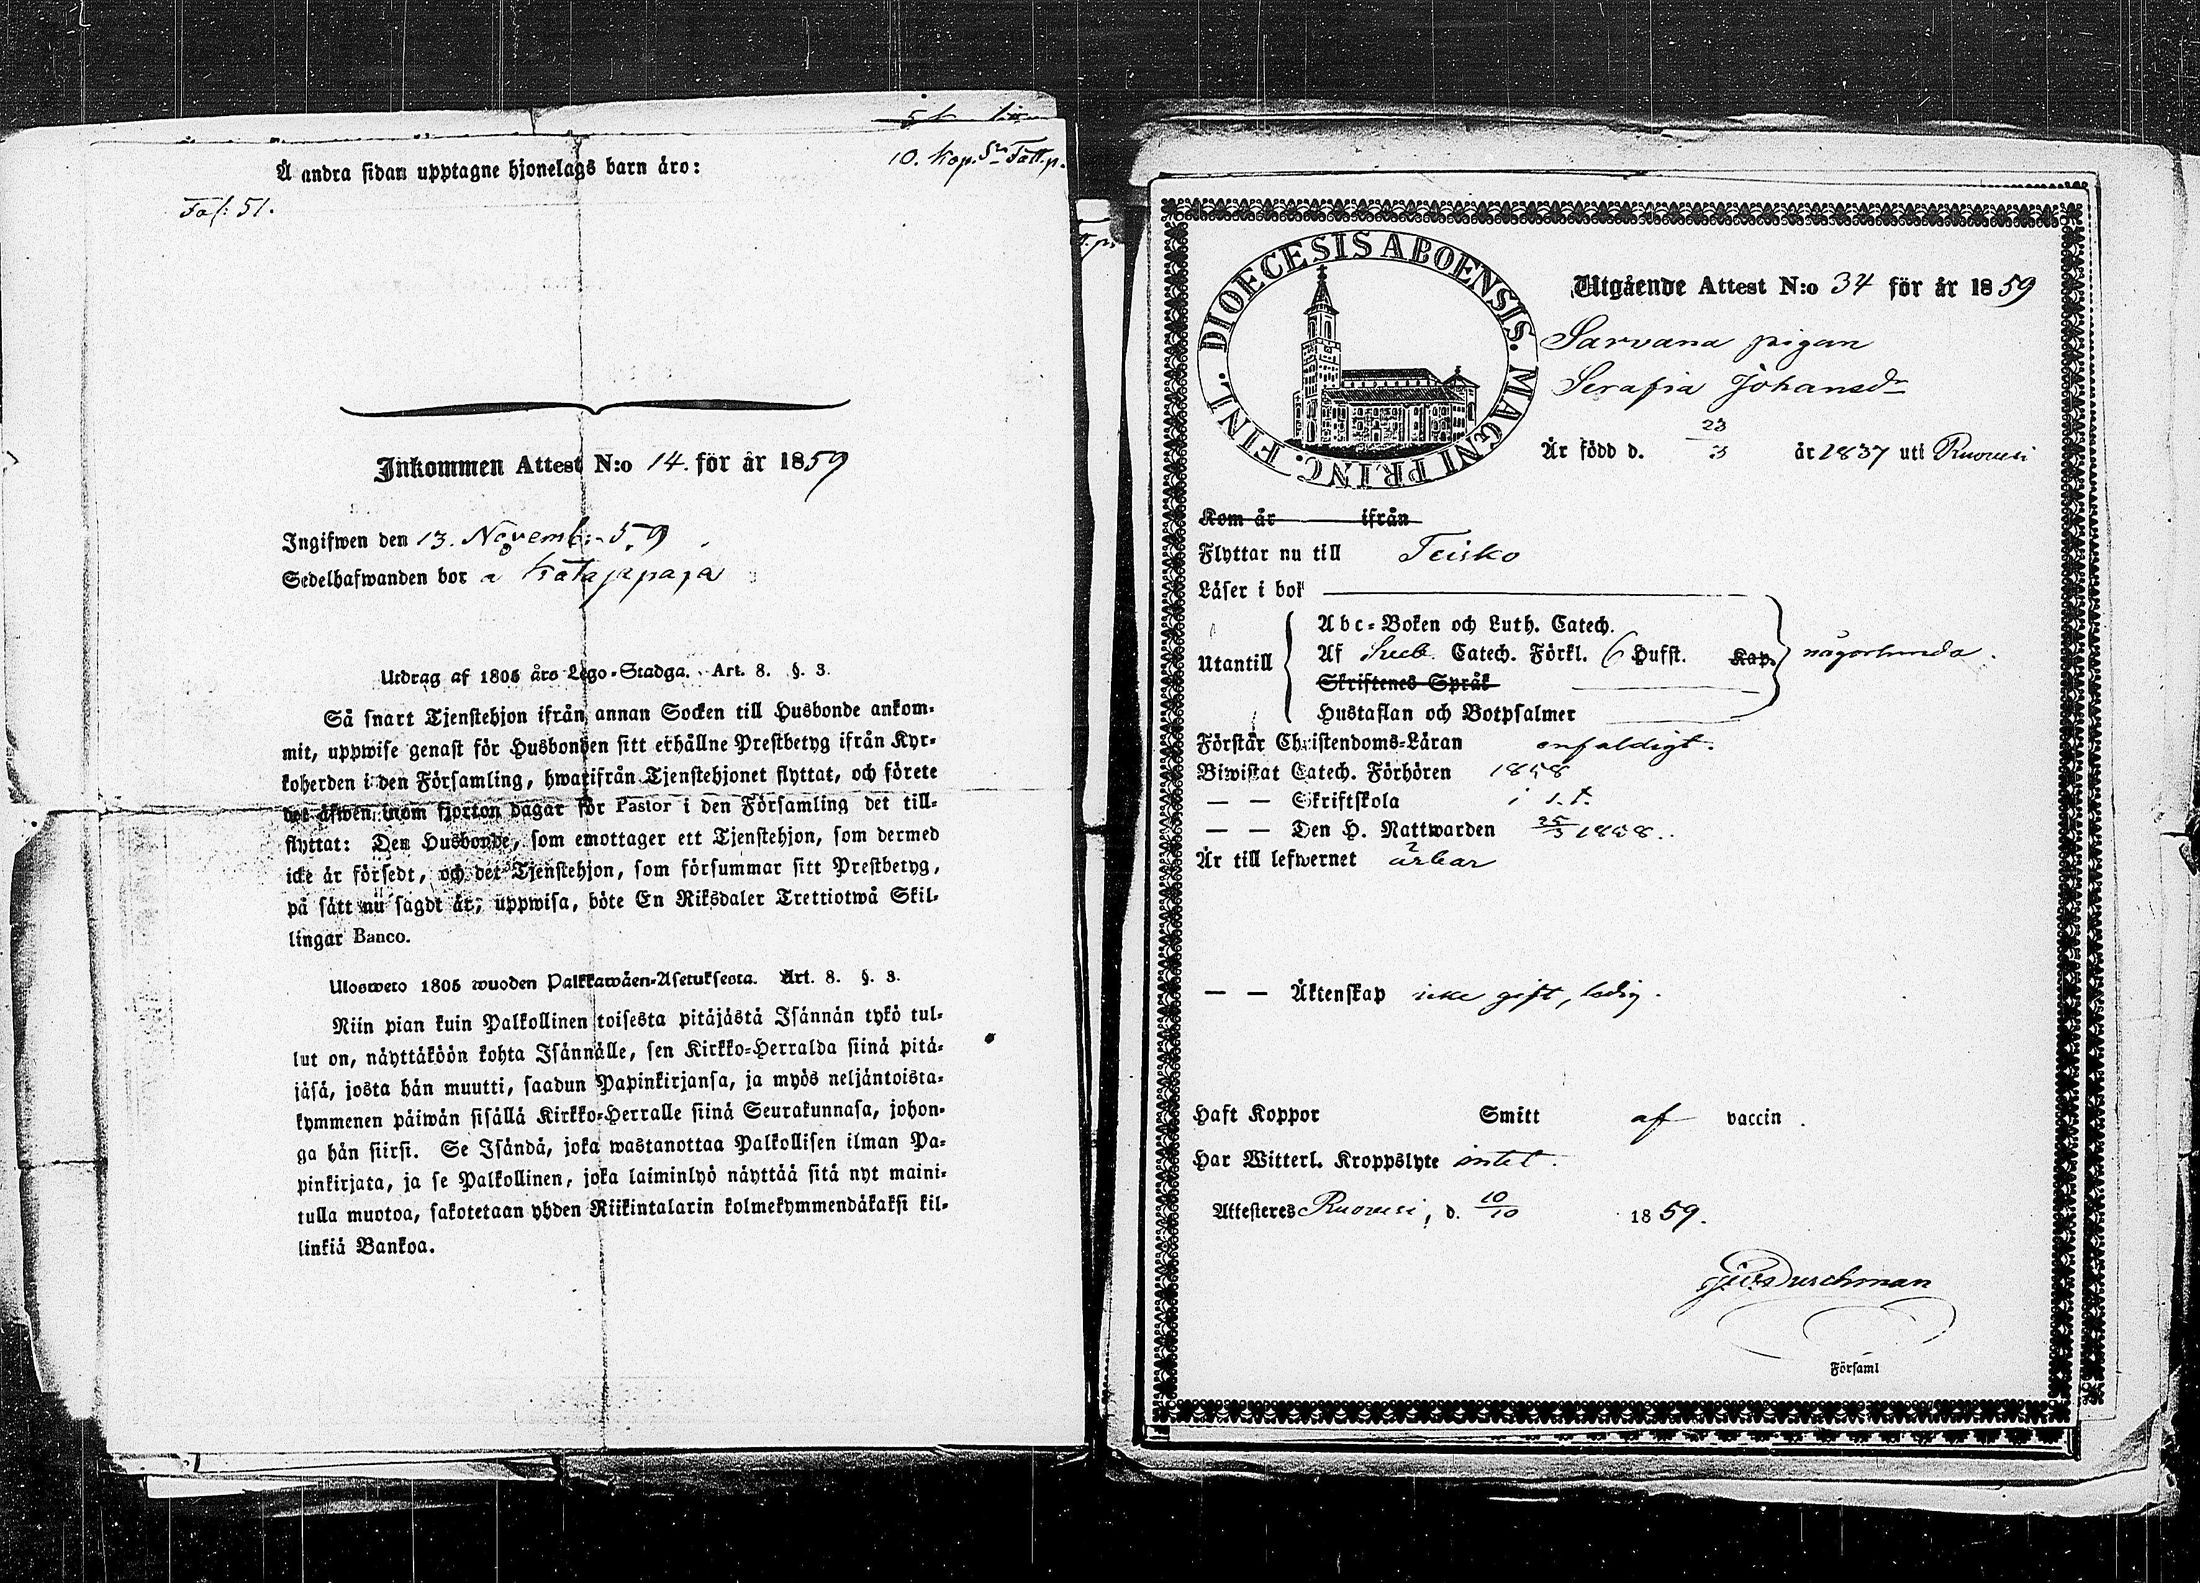 10. Kop. Sn Tatt.p.
Å andra sidan upptagne hjonelags barn äro:
Fol: 51.
Inkommen Attest N:o 14. för år 1859
Ingifwen den 13. Novemb:- 59
Sedelhafwanden bor a Katajapaja
Utdrag af 1805 års Lego-Stadga. Art. 8. §. 3.
Så snart Tjenstehjon ifrån annan Socken till Husbonde ankom-
mit, uppwise genast för Husbonden sitt erhållne Prestbetyg ifrån Kyr-
koherden i den Församling, hwarifrån Tjenstehjonet flyttat, och förete
det äfwen inom fjorton dagar för Pastor i den Församling det till-
flyttat: Den Husbonde, som emottager ett Tjenstehjon, som dermed
icke är försedt, och det Tjenstehjon, som försummar sitt Prestbetyg,
på sätt nu sagdt är, uppwisa, böte En Riksdaler Trettiotwå Skil-
lingar Banco.
Ulosweto 1805 wuoden Palkkawäen-Asetuksesta. Art. 8. §. 3.
Niin pian kuin Palkollinen toisesta pitäjästä Isännän tykö tul-
lut on, näyttäköön kohta Isännälle, sen Kirkko-Herralda siinä pitä-
jäsä, josta hän muutti, saadun Papinkirjansa, ja myös neljäntoista-
kymmenen päiwän sisällä Kirkko-Herralle siinä Seurakunnasa, johon-
ga hän siirsi. Se Isändä, joka wastanottaa Palkollisen ilman Pa-
pinkirjata, ja se Palkollinen, joka laiminlyö näyttää sitä nyt maini-
tulla muotoa, sakotetaan yhden Riikintalarin kolmekymmendäkaksi kil-
linkiä Bankoa.
DIOECESIS ABOENSIS. MAGNI PRINC. FINL.
Utgående Attest N:o 34 för år 1859
Sarvana pigan
Serafia Johansdr
Är född d. 23/3 år 1837 uti Ruovesi
Kom år ifrån
Flyttar nu till Teisko
Läser i bok
Utantill
Abc-Boken och Luth. Catech.
Af Sveb. Catech. Förkl. 6 Hufst. Kap. någorlunda.
Skriftenes Språk
Hustaflan och Botpsalmer
Förstår Christendoms-Läran enfaldigt.
Biwistat Catech. Förhören 1858
— — Skriftskola i s.t.
— — Den H. Nattwarden 25/3 1858.
Är till lefwernet ärbar
— — Äktenskap icke gift, ledig.
Haft Koppor Smitt af vaccin.
Har Witterl. Kroppslyte intet.
Attesteres Ruovesi, d. 10/10 1859.
Durchman
Församl